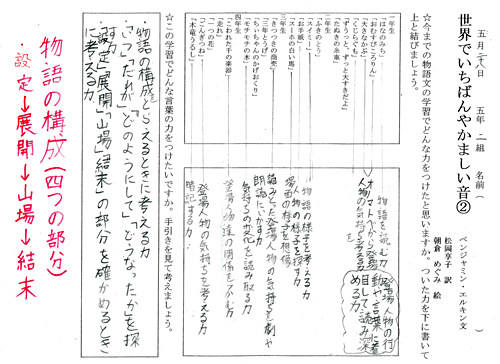 五月二八日 五年二組 名前(
世界でいちばんやかましい音②
ベンジャミン・エルキン文
松岡享子 訳
朝倉 めぐみ 絵
☆今までの物語文の学習でどんな力をつけたと思いますか。ついた力を下に書いて
上と結びましょう。
一年生
「はなのみち」
「おむすびころりん」
「おおきなかぶ」
「くじらぐも」
「ずうっと、ずっと大すきだよ」
「たぬきの糸車」
二年生
「ふきのとう」
「スーホの白い馬」
三年生
「きつつきの商売」
「三年とうげ」
「ちいちゃんのかげおくり」
「モチモチの木」
四年生
「こわれた千の楽器」
「一つの花」
「ごんぎつね」
「木竜うるし」
物語を読む力
オノマトペから登場
人物の気持ちを考える力
登場人物の行
動や言葉に着
目して読み深
める力
物語の様子を考える力
人物の様子を探す力
場面の様子を想像
読みとった登場人物の気持ちを劇や
朗読にいかす力
気持ちの変化を読み取る力
登場人物達の関係をつかむ力
登場人物の気持ちを考える力
暗記する力
☆この学習でどんな言葉の力をつけたいですか。手引きを見て考えましょう。
物語の構成をとらえるときに考える力
「だれが」「どのようにして」「どうなったかを探
す力
「設定」「展開」「山場」「結末」の部分を確かめるとき
に考える力
物語の構成(四つの部分)
・設定→展開→山場→結末